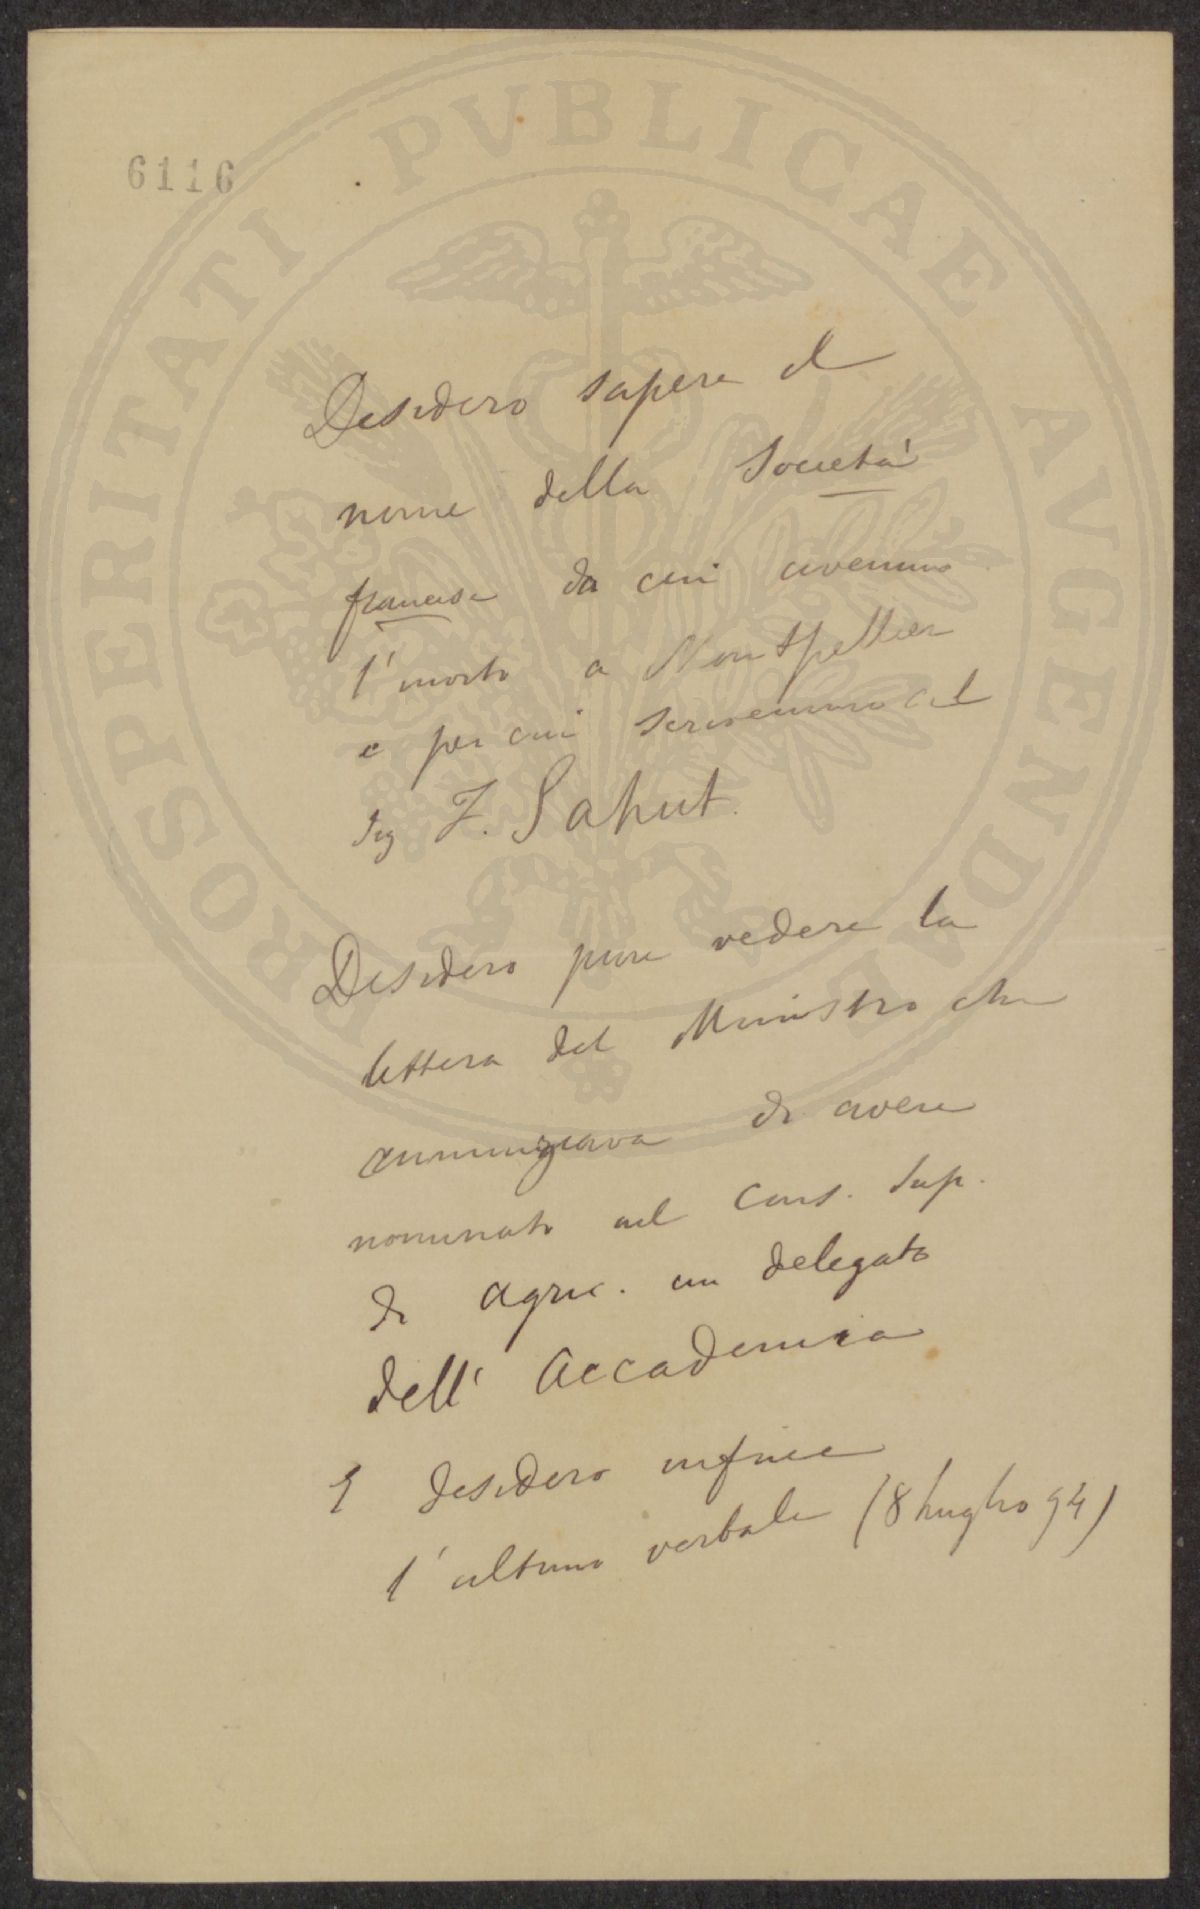 6116
PROSPERITATI PVBLICAE AVGENDAE
Desidero sapere il
nome della Società
francese da cui avemmo
l'invito a Montpellier
e per cui scrivemmo al
Sig F. Sahut.
Desidero pure vedere la
lettera del Ministro che
annunziava di avere
nominato nel Cons. Sup.
di Agric. un delegato
dell' Accademia
E desidero infine
l'ultimo verbale (8 Luglio 94)